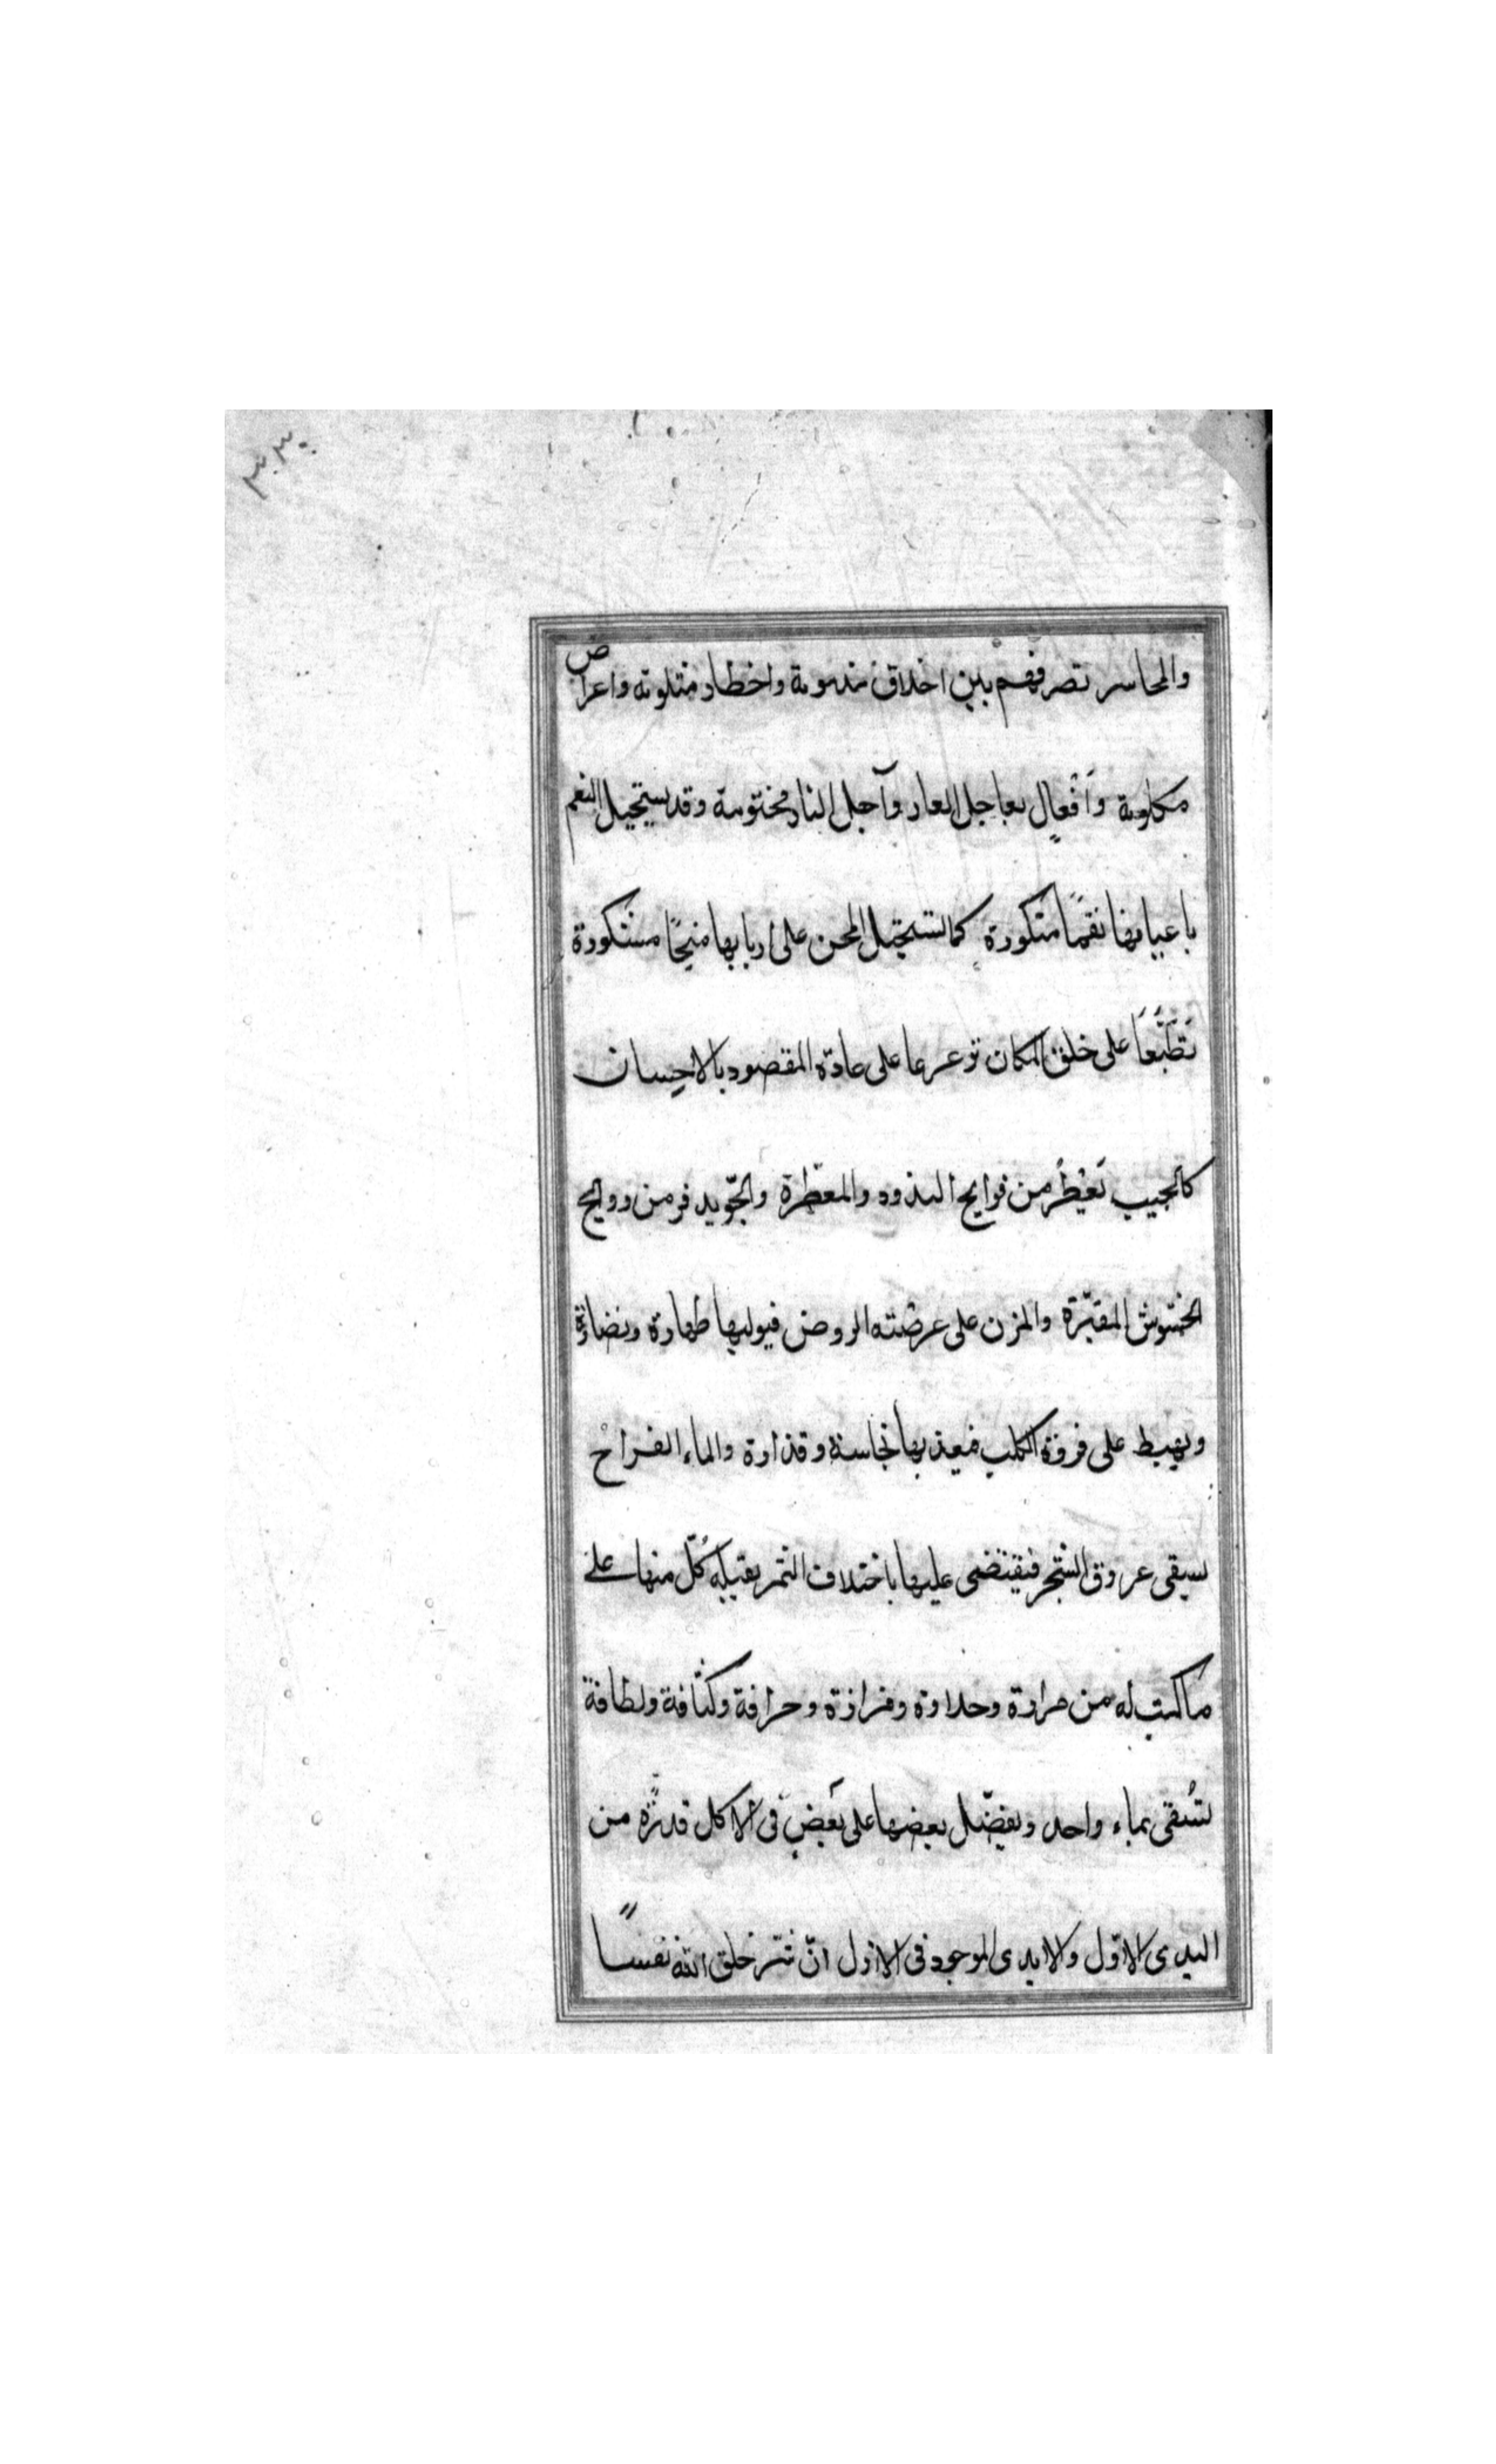 ٣٣٠
والمحاسر تصرفهم بين اخلاق مذمومة واخطار متلوته واعراض
مكلومة وَافعالٍ بعاجل العار وآجل النار مختومة وقد يستحيل النعم
باعيانها نقمًا متكورة كما تستحيل المحن على اربابها منحًا مستكورة
تَطَبُّعًا على خلق المكان توعرعا على عادة المقصود بالاحسان
كالجيب تَعْطُر من فوايح البذود والمعطّرة والجّويد فر من روايح
الخشوش المقبّرة والمزن على عرضته الروض فيوليها طهارة ونضارة
ويهبط على فروة الكلب فيعذبها نجاسة وقذارة والماء القراح
يسقى عروق الشجر فيقتضى عليها باختلاف الثمر بقبله كُلّ منها على
ما كتب له من مرارة وحلاوة ومزازة وحرافة وكثافة ولطافة
تُسْقى بماء واحد ويفضّل بعضها على بَعْضٍ فى الاكل قدرة من
البدى الاوّل والابدى الموجود فى الازل انّ شرّ خلق الله نفسًا